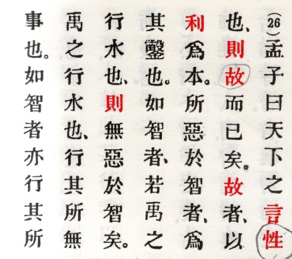 (26)孟子曰天下之言性
也、則故而已矣。故者、以
利爲本。所惡於智者、爲
其鑿也。如智者、若禹之
行水也、則無惡於智矣。
禹之行水也、行其所無
事也。如智者亦行其所